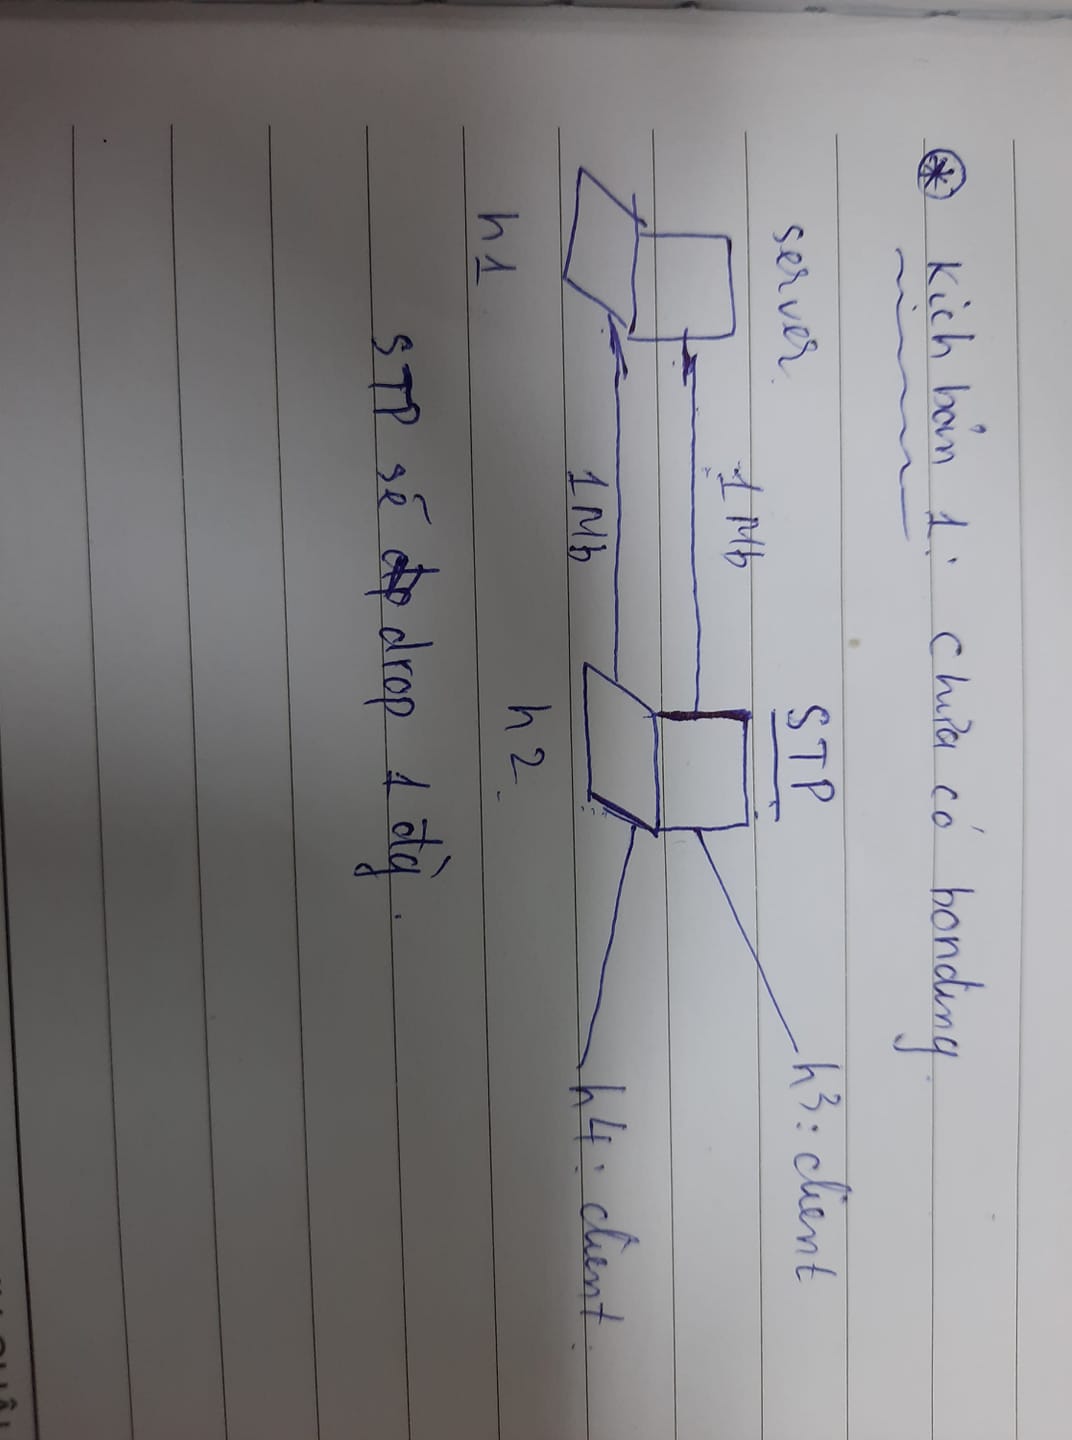 * Kịch bản 1: Chưa có bonding.
server.
STP
h3: client
1 Mb
1 Mb
h4: client.
h1
h2.
STP sẽ drop 1 đg`.